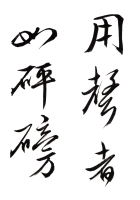 用聲者
如砰磅